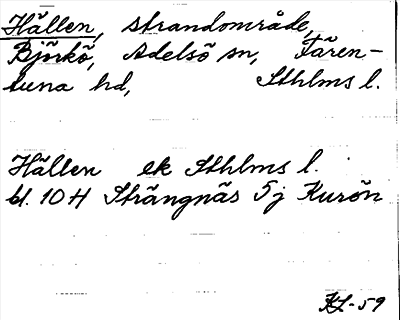 Hällen, strandområde,
Björkö, Adelsö sn, Fären-
tuna hd, Sthlms l.
Hällen ek Sthlms l.
bl. 10 H Strängnäs 5j Kurön
KL-59